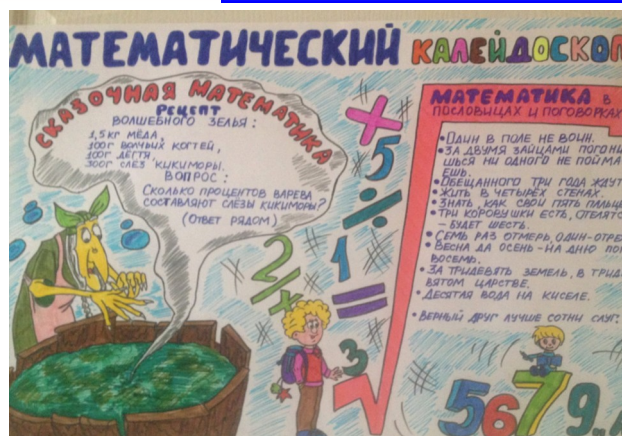 МАТЕМАТИЧЕСКИЙ КАЛЕЙДОСКОП
СКАЗОЧНАЯ МАТЕМАТИКА
РЕЦЕПТ
ВОЛШЕБНОГО ЗЕЛЬЯ:
1,5 КГ МЁДА,
100Г ВОЛЧЬИХ КОГТЕЙ,
100Г ДЁГТЯ,
300Г СЛЁЗ КИКИМОРЫ.
ВОПРОС:
СКОЛЬКО ПРОЦЕНТОВ ВАРЕВА
СОСТАВЛЯЮТ СЛЁЗЫ КИКИМОРЫ?
(ОТВЕТ РЯДОМ)
× 5 ÷
2 1
+ =
3
√
МАТЕМАТИКА В
ПОСЛОВИЦАХ И ПОГОВОРКАХ
• ОДИН В ПОЛЕ НЕ ВОИН.
• ЗА ДВУМЯ ЗАЙЦАМИ ПОГОНИ
ШЬСЯ НИ ОДНОГО НЕ ПОЙМА
ЕШЬ.
• ОБЕЩАННОГО ТРИ ГОДА ЖДУТ
• ЖИТЬ В ЧЕТЫРЁХ СТЕНАХ.
• ЗНАТЬ, КАК СВОИ ПЯТЬ ПАЛЬЦ
• ТРИ КОРОВУШКИ ЕСТЬ, ОТЕЛЯТС
– БУДЕТ ШЕСТЬ.
• СЕМЬ РАЗ ОТМЕРЬ, ОДИН-ОТРЕ
• ВЕСНА ДА ОСЕНЬ - НА ДНЮ ПО
ВОСЕМЬ.
• ЗА ТРИДЕВЯТЬ ЗЕМЕЛЬ, В ТРИД
ВЯТОМ ЦАРСТВЕ.
• ДЕСЯТАЯ ВОДА НА КИСЕЛЕ.
• ВЕРНЫЙ ДРУГ ЛУЧШЕ СОТНИ СЛУГ.
5 6 7 9